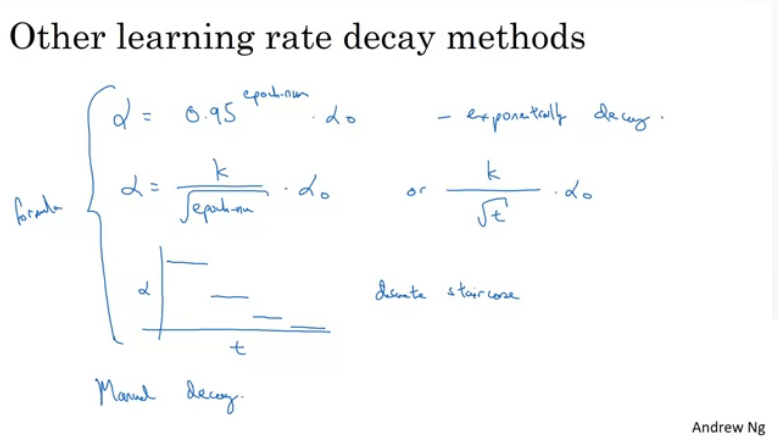 Other learning rate decay methods
α = 0.95^epoch-num · α₀ - exponentially decay.
formula
α = k / √epoch-num · α₀ or k / √t · α₀
α discrete staircase
t
Manual decay.
Andrew Ng